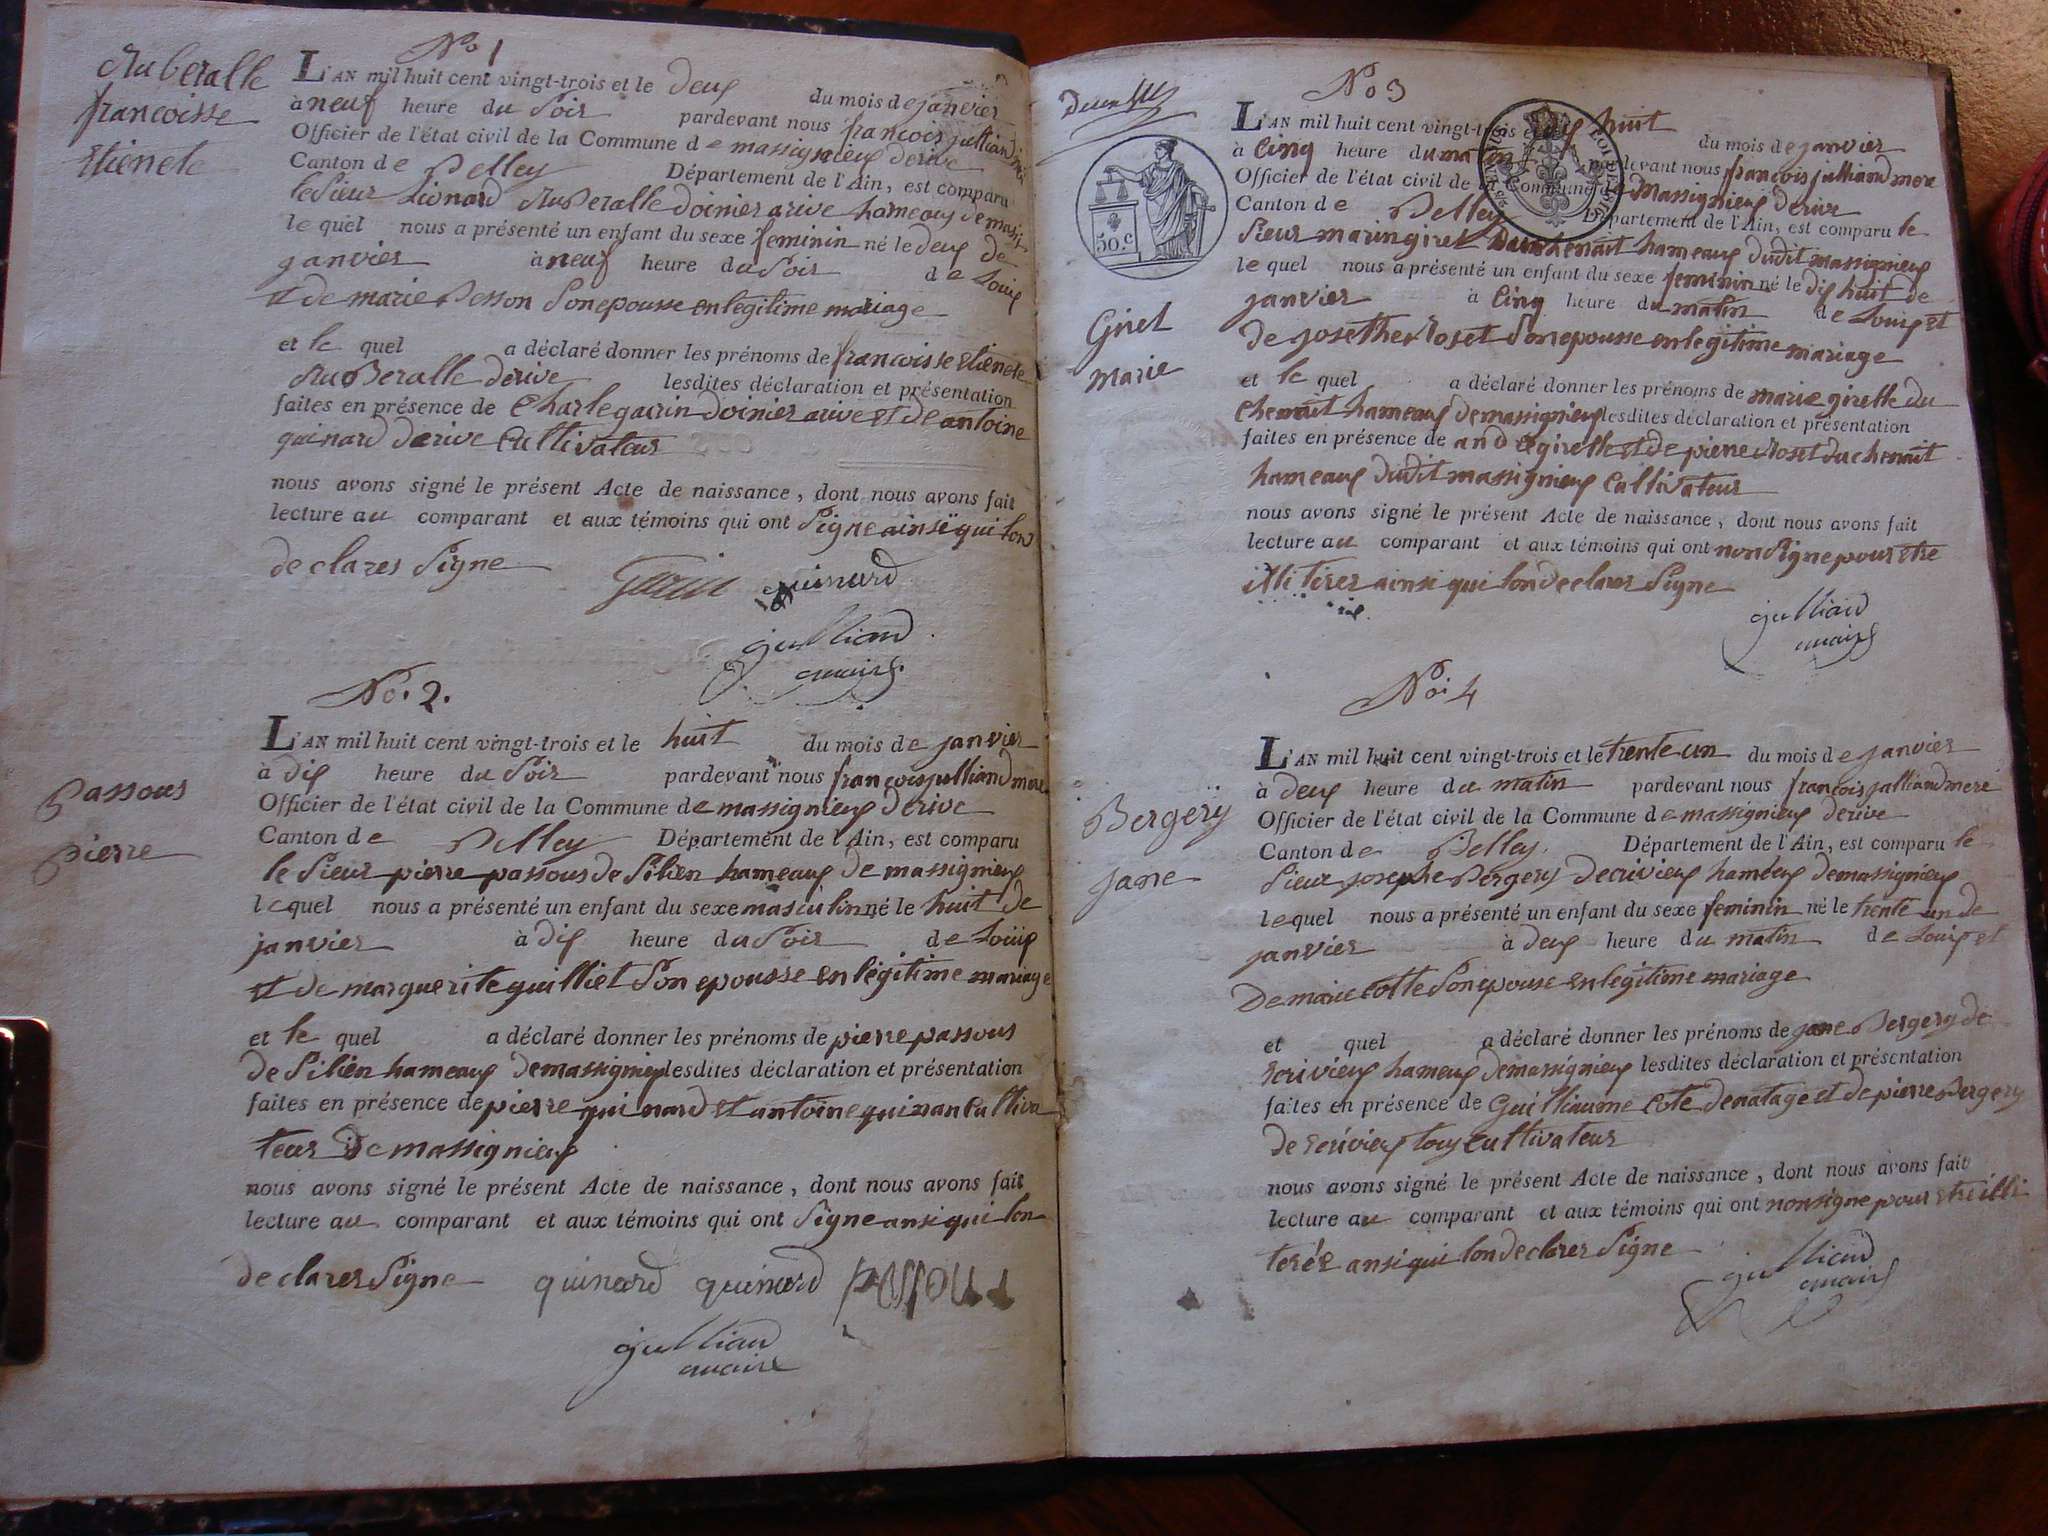 No 1
Ruberalle
francoisse
Etienete
L'AN mil huit cent vingt-trois et le deux du mois de janvier
à neuf heure du Soir pardevant nous francois julliand
Officier de l'état civil de la Commune de massignieux derive
Canton de Belley Département de l'Ain, est comparu
le Sieur Lionard Ruberalle doinier a rive hameaux de
le quel nous a présenté un enfant du sexe feminin né le deux de
janvier à neuf heure du Soir de Louis
et de marie Besson Son epousse en legitime mariage
et le quel a déclaré donner les prénoms de francoisse Etienete
Ruberalle derive lesdites déclaration et présentation
faites en présence de Charle garin doinier a rive et de antoine
quinard de rive Cultivateur
nous avons signé le présent Acte de naissance, dont nous avons fait
lecture au comparant et aux témoins qui ont Signe ainsi qui lon
de clarer Signe
Garin quinard
julliand
maire
No. 2.
Passous
pierre
L'AN mil huit cent vingt-trois et le huit du mois de janvier
à dix heure du Soir pardevant nous francois julliand mere
Officier de l'état civil de la Commune de massignieux derive
Canton de Belley Département de l'Ain, est comparu
le Sieur pierre passous de Silien hameaux de massignieux
le quel nous a présenté un enfant du sexe masculin né le huit de
janvier à dix heure du Soir de Louis
et de marguerite guilliet Son epousse en légitime mariage
et le quel a déclaré donner les prénoms de pierre passous
de Silien hameaux de massignieux lesdites déclaration et présentation
faites en présence de pierre quinard et antoine quinan Cultiva
teur de massignieux
nous avons signé le présent Acte de naissance, dont nous avons fait
lecture au comparant et aux témoins qui ont Signe ansi qui lon
de clarer Signe quinard quinard passous
julliand
maire
No 3
50.c
Giret
marie
L'AN mil huit cent vingt-trois et dix huit du mois de janvier
à Cinq heure du matin pardevant nous francois julliand mere
Officier de l'état civil de la Commune de Massignieux derive
Canton de Belley Département de l'Ain, est comparu le
Sieur marin giret Du chenait hameaux dudit massignieux
le quel nous a présenté un enfant du sexe feminin né le dix huit de
janvier à Cinq heure du matin de Louis et
de josethe Roset Son epousse en legitime mariage
et le quel a déclaré donner les prénoms de marie girette du
chenait hameaux de massignieux lesdites déclaration et présentation
faites en présence de andre girette et de pierre Roset du chenait
hameaux dudit massignieux Cultivateur
nous avons signé le présent Acte de naissance, dont nous avons fait
lecture au comparant et aux témoins qui ont non Signe pour etre
illitirer ainsi qui lon declarer Signe
julliand
maire
No. 4
Bergerÿ
jane
L'AN mil huit cent vingt-trois et le trente un du mois de janvier
à deux heure du matin pardevant nous francois julliand mere
Officier de l'état civil de la Commune de massignieux derive
Canton de Belley. Département de l'Ain, est comparu le
Sieur josephe Bergery de crivieux hameux de massignieux
le quel nous a présenté un enfant du sexe feminin né le trente un de
janvier à deux heure du matin de Louis et
De marie Cotte Son epouse en legitime mariage
et quel a déclaré donner les prénoms de jane Bergery de
Ecrivieux hameux de massignieux lesdites déclaration et présentation
faites en présence de Guilliaume Cote de natage et de pierre Bergery
de Ecrivieux tous cultivateur
nous avons signé le présent Acte de naissance, dont nous avons fait
lecture au comparant et aux témoins qui ont non signe pour etre illi
terér ansi qui lon declarer Signe
julliand
maire